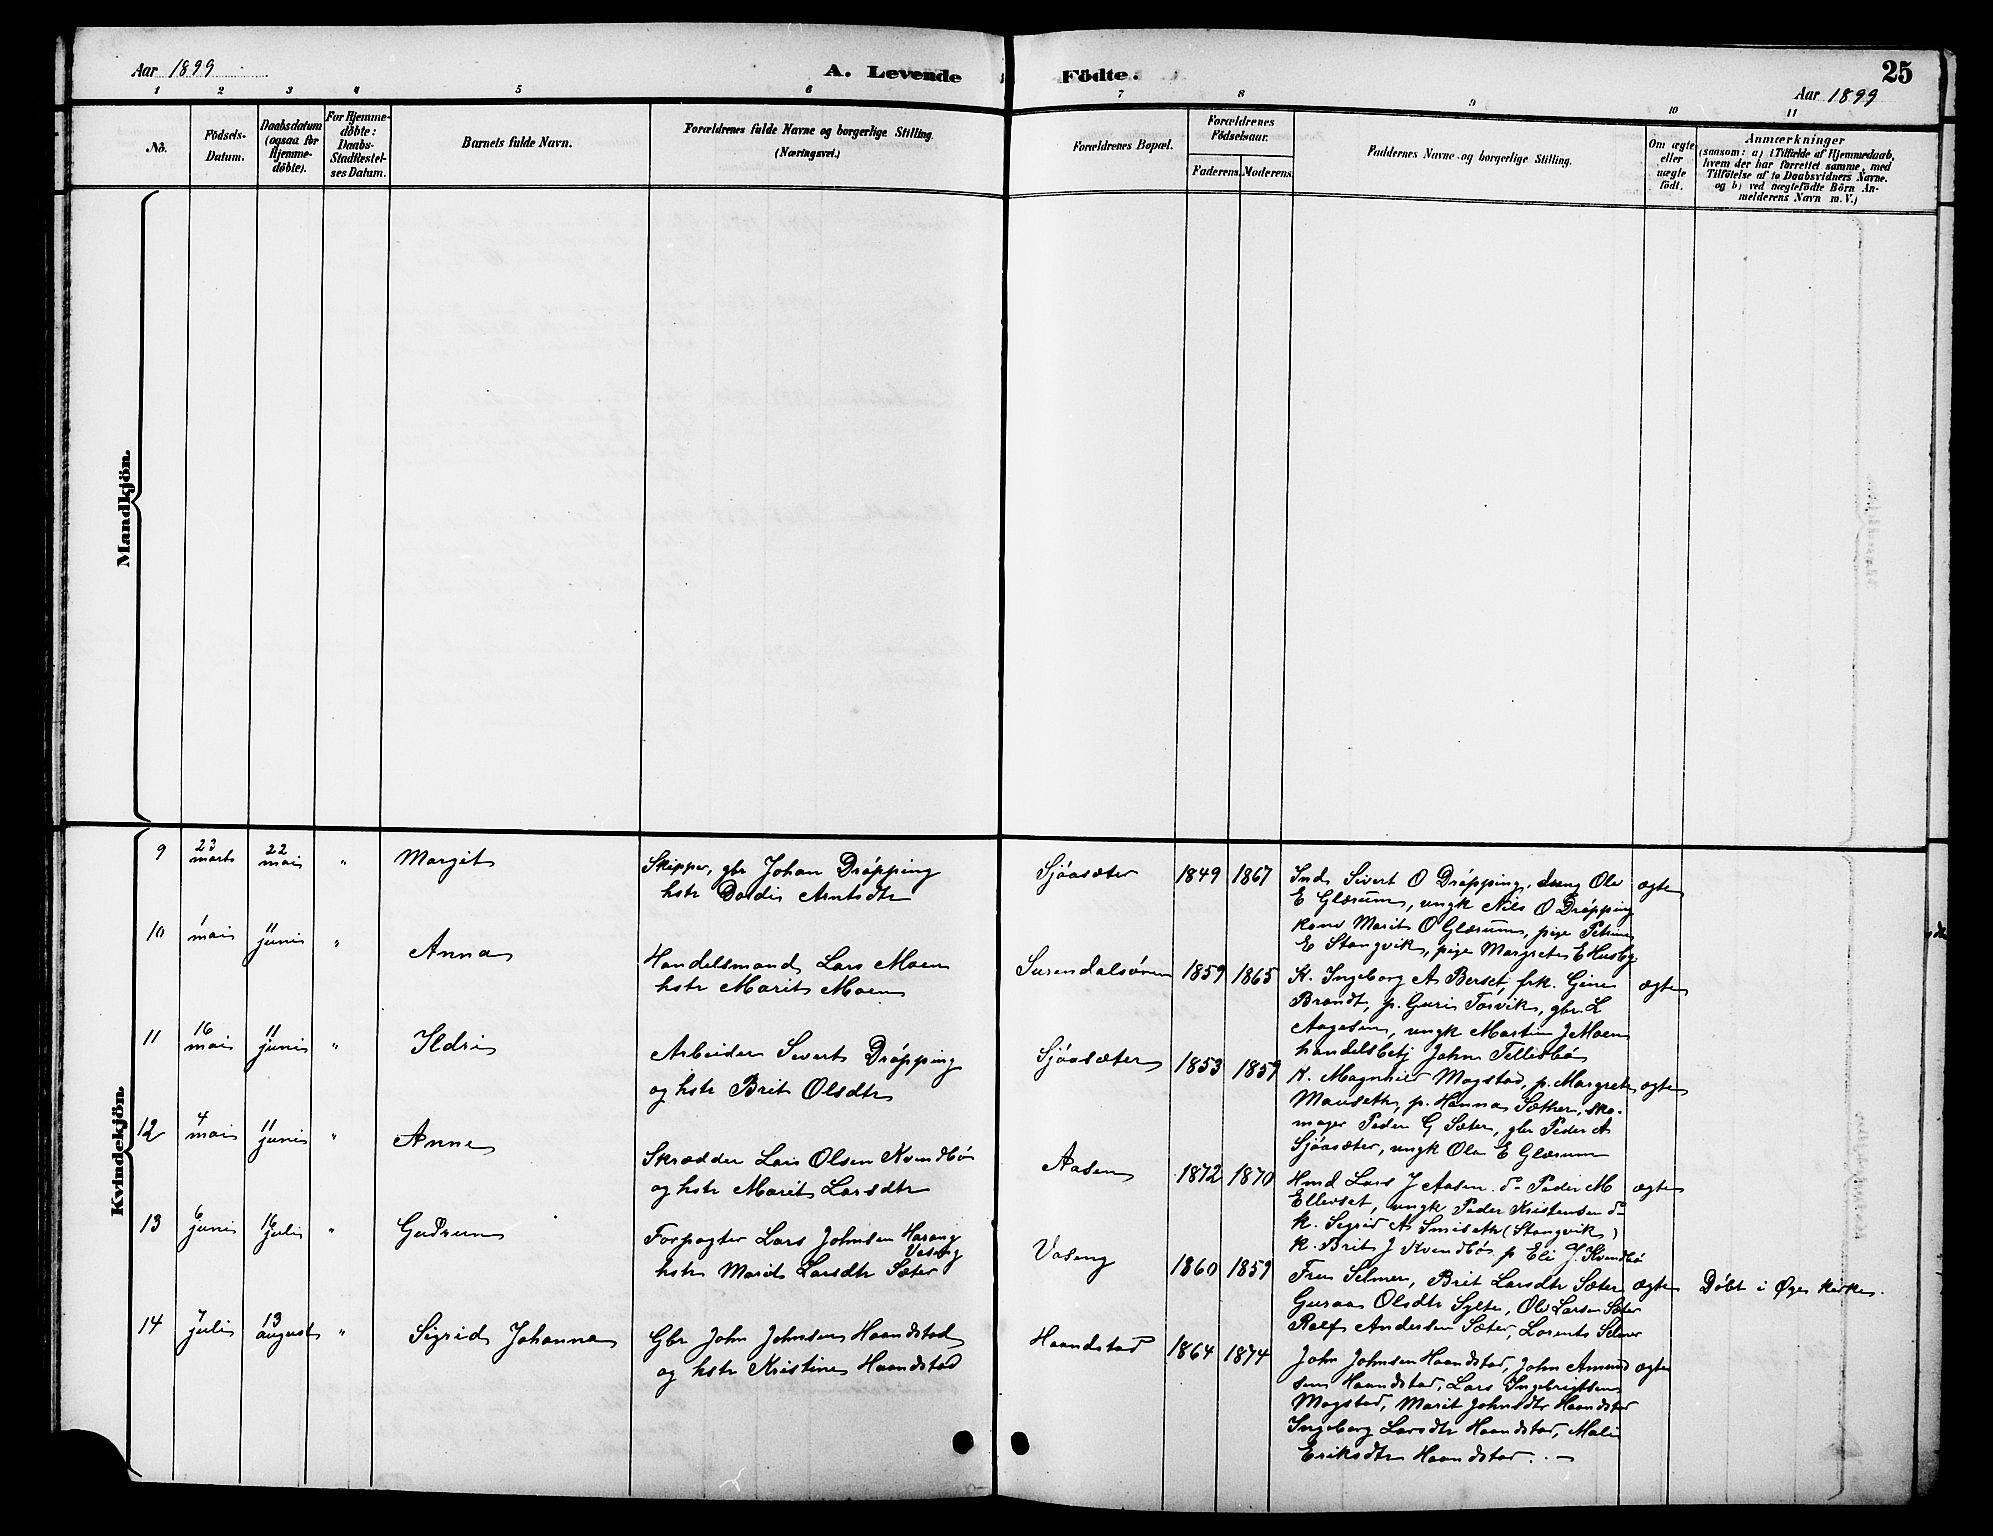 Aar 1899
A. Levende Födte.
25
Aar 1899
1 2 3 4 5 6 7 8 9 10 11
No.
Födsels-Datum.
Daabsdatum (ogsaa for Hjemmedøbte).
For Hjemmedøbte: Daabs-Stadfæstelses Datum.
Barnets fulde Navn.
Forældrenes fulde Navne og borgerlige Stilling.
(Næringsvei.)
Forældrenes Bopæl.
Forældrenes Födselsaar.
Faderens. Moderens.
Faddernes Navne og borgerlige Stilling.
Om ægte eller uægte født.
Anmærkninger
(saasom: a) i Tilfælde af Hjemmedaab,
hvem der har forrettet samme, med
Tilföielse af to Daabsvidners Navne.
og b) ved uægtefödte Börn An-
melderens Navn m. V.)
Mandkjön.
Kvindekjön.
9 23 marts 22 mai " Margit
Skipper, gbr Johan Drøpping
hstr Dordi Arntsdtr
Sjøasæter 1849 1867
Ind. Sivert O Drøpping, Ole
E Glærum, ungk Nils O Drøpping
kone Marit O Glærum, pige Petrine
E Stangvik, pige Margrete E Husby
ægte
10 1 mai 11 juni " Anna
Handelsmand Lars Moen
hstr Marit Moen
Surendalsøren 1859 1865
K. Ingeborg A Berset, frk. Gine
Brandt, p. Guri Torvik, gbr. L
Aagesen, ungk Martin J Moen
handelsbetj John Tellesbø
ægte
11 16 mai 11 juni " Ildri
Arbeider Sivert Drøpping
og hstr Brit Olsdtr
Sjøasæter 1853 1859
K. Magnhild Mogstad, p. Margrete
Mauseth, p. Hanna Sæther, sko-
mager Peder G Sæter, gbr Peder A
Sjøasæter, ungk Ola E Glærum
ægte
12 4 mai 11 juni " Anne
Skrædder Lars Olsen Kvendbø
og hstr Marit Larsdtr
Aasen 1872 1870
Hmd Lars J Aasen. do Peder M
Ellevset, ungk Peder Kristensen do
k. Sigrid A Smiseth (Stangvik)
k. Brit J Kvendbø p Eli J Kvendbø
ægte
13 6 juni 16 juli " Gudrun
Forpagter Lars Johnsen Harang
Vaseng
hstr Marit Larsdtr Sæter
Vaseng 1860 1859
Fru Selmer, Brit Larsdtr Sæter
Guraa Olsdtr Sylte, Ole Larsen Sæter
Rolf Andersen Sæter, Lorents Selmer
ægte
Døbt i Øye kirke.
14 7 juli 13 august " Sigrid Johanna
Gbr John Johnsen Haandstad
og hstr Kristine Haandstad
Haandstad 1864 1874
John Johnsen Haandstad, John Amund
sen Haandstad, Lars Ingebrigtsen
Mogstad, Marit Johnsdtr Haandstad
Ingeborg Larsdtr Haandstad, Mali
Eriksdtr Haandstad. . —
ægte